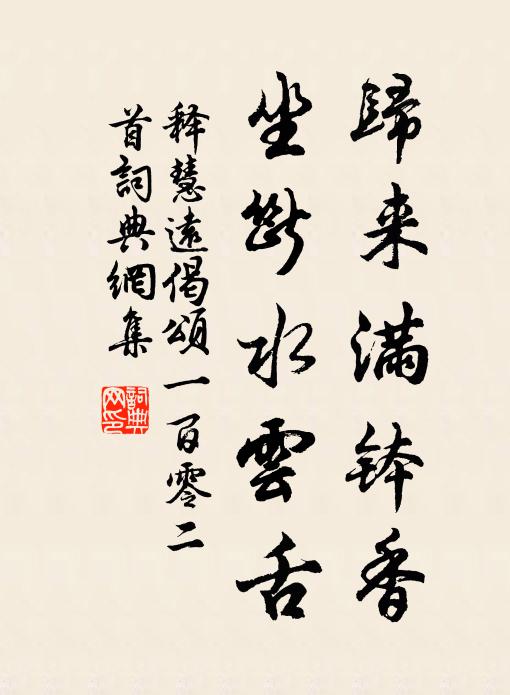 歸来满鉢香
坐斷水雲舌
释慧遠偈頌一百零二
首詞典網集
詞典
网印